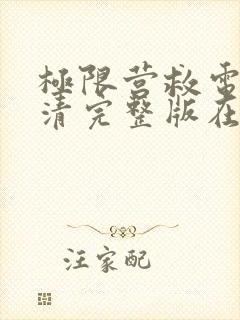 極限营救電
清完整版在
汪家配